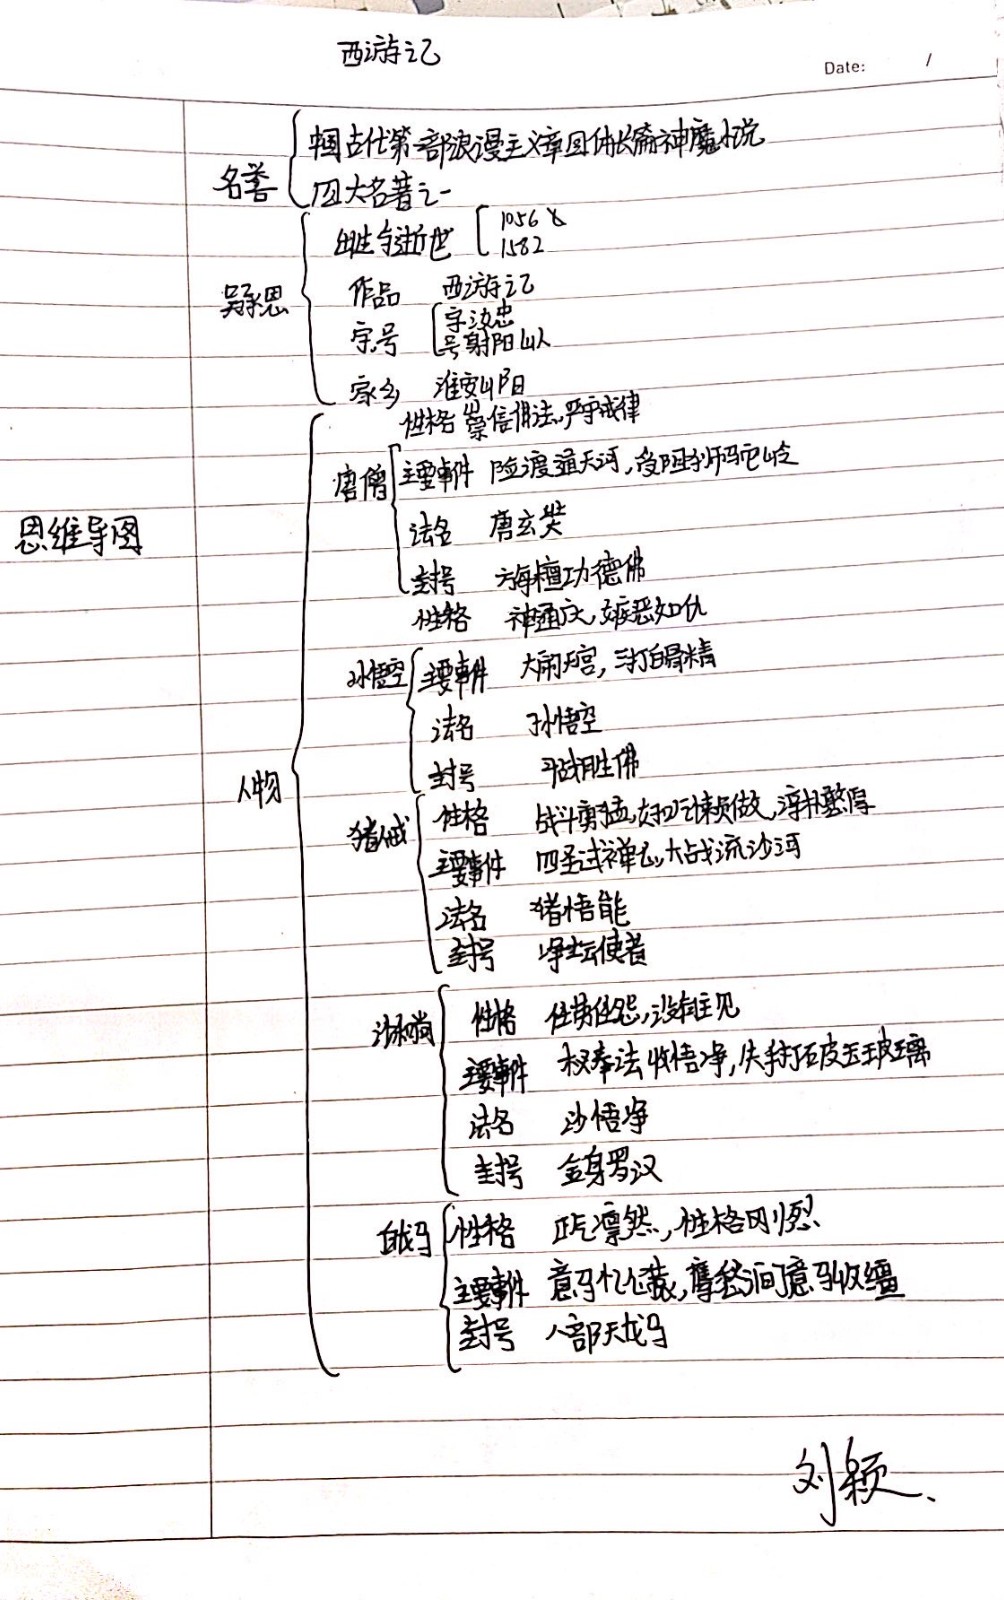 西游记
Date: /
名誉
中国古代第一部浪漫主义章回体长篇神魔小说
四大名著之一
吴承恩
出生与逝世
1056
1582
作品 西游记
字号
字汝忠
号射阳山人
家乡 淮安山阳
思维导图
人物
唐僧
性格 崇信佛法,严守戒律
主要事件 险渡通天河,受阻狮驼岭
法名 唐玄奘
封号 旃檀功德佛
孙悟空
性格 神通广大,疾恶如仇
主要事件 大闹天宫,三打白骨精
法名 孙悟空
封号 斗战胜佛
猪八戒
性格 战斗勇猛,好吃懒做,淳朴憨厚
主要事件 四圣试禅心,大战流沙河
法名 猪悟能
封号 净坛使者
沙和尚
性格 任劳任怨,没有主见
主要事件 木叉奉法收悟净,失手打破玉玻璃
法名 沙悟净
封号 金身罗汉
白龙马
性格 正气凛然,性格刚烈
主要事件 意马忆心猿,鹰愁涧意马收缰
封号 八部天龙马
刘颖